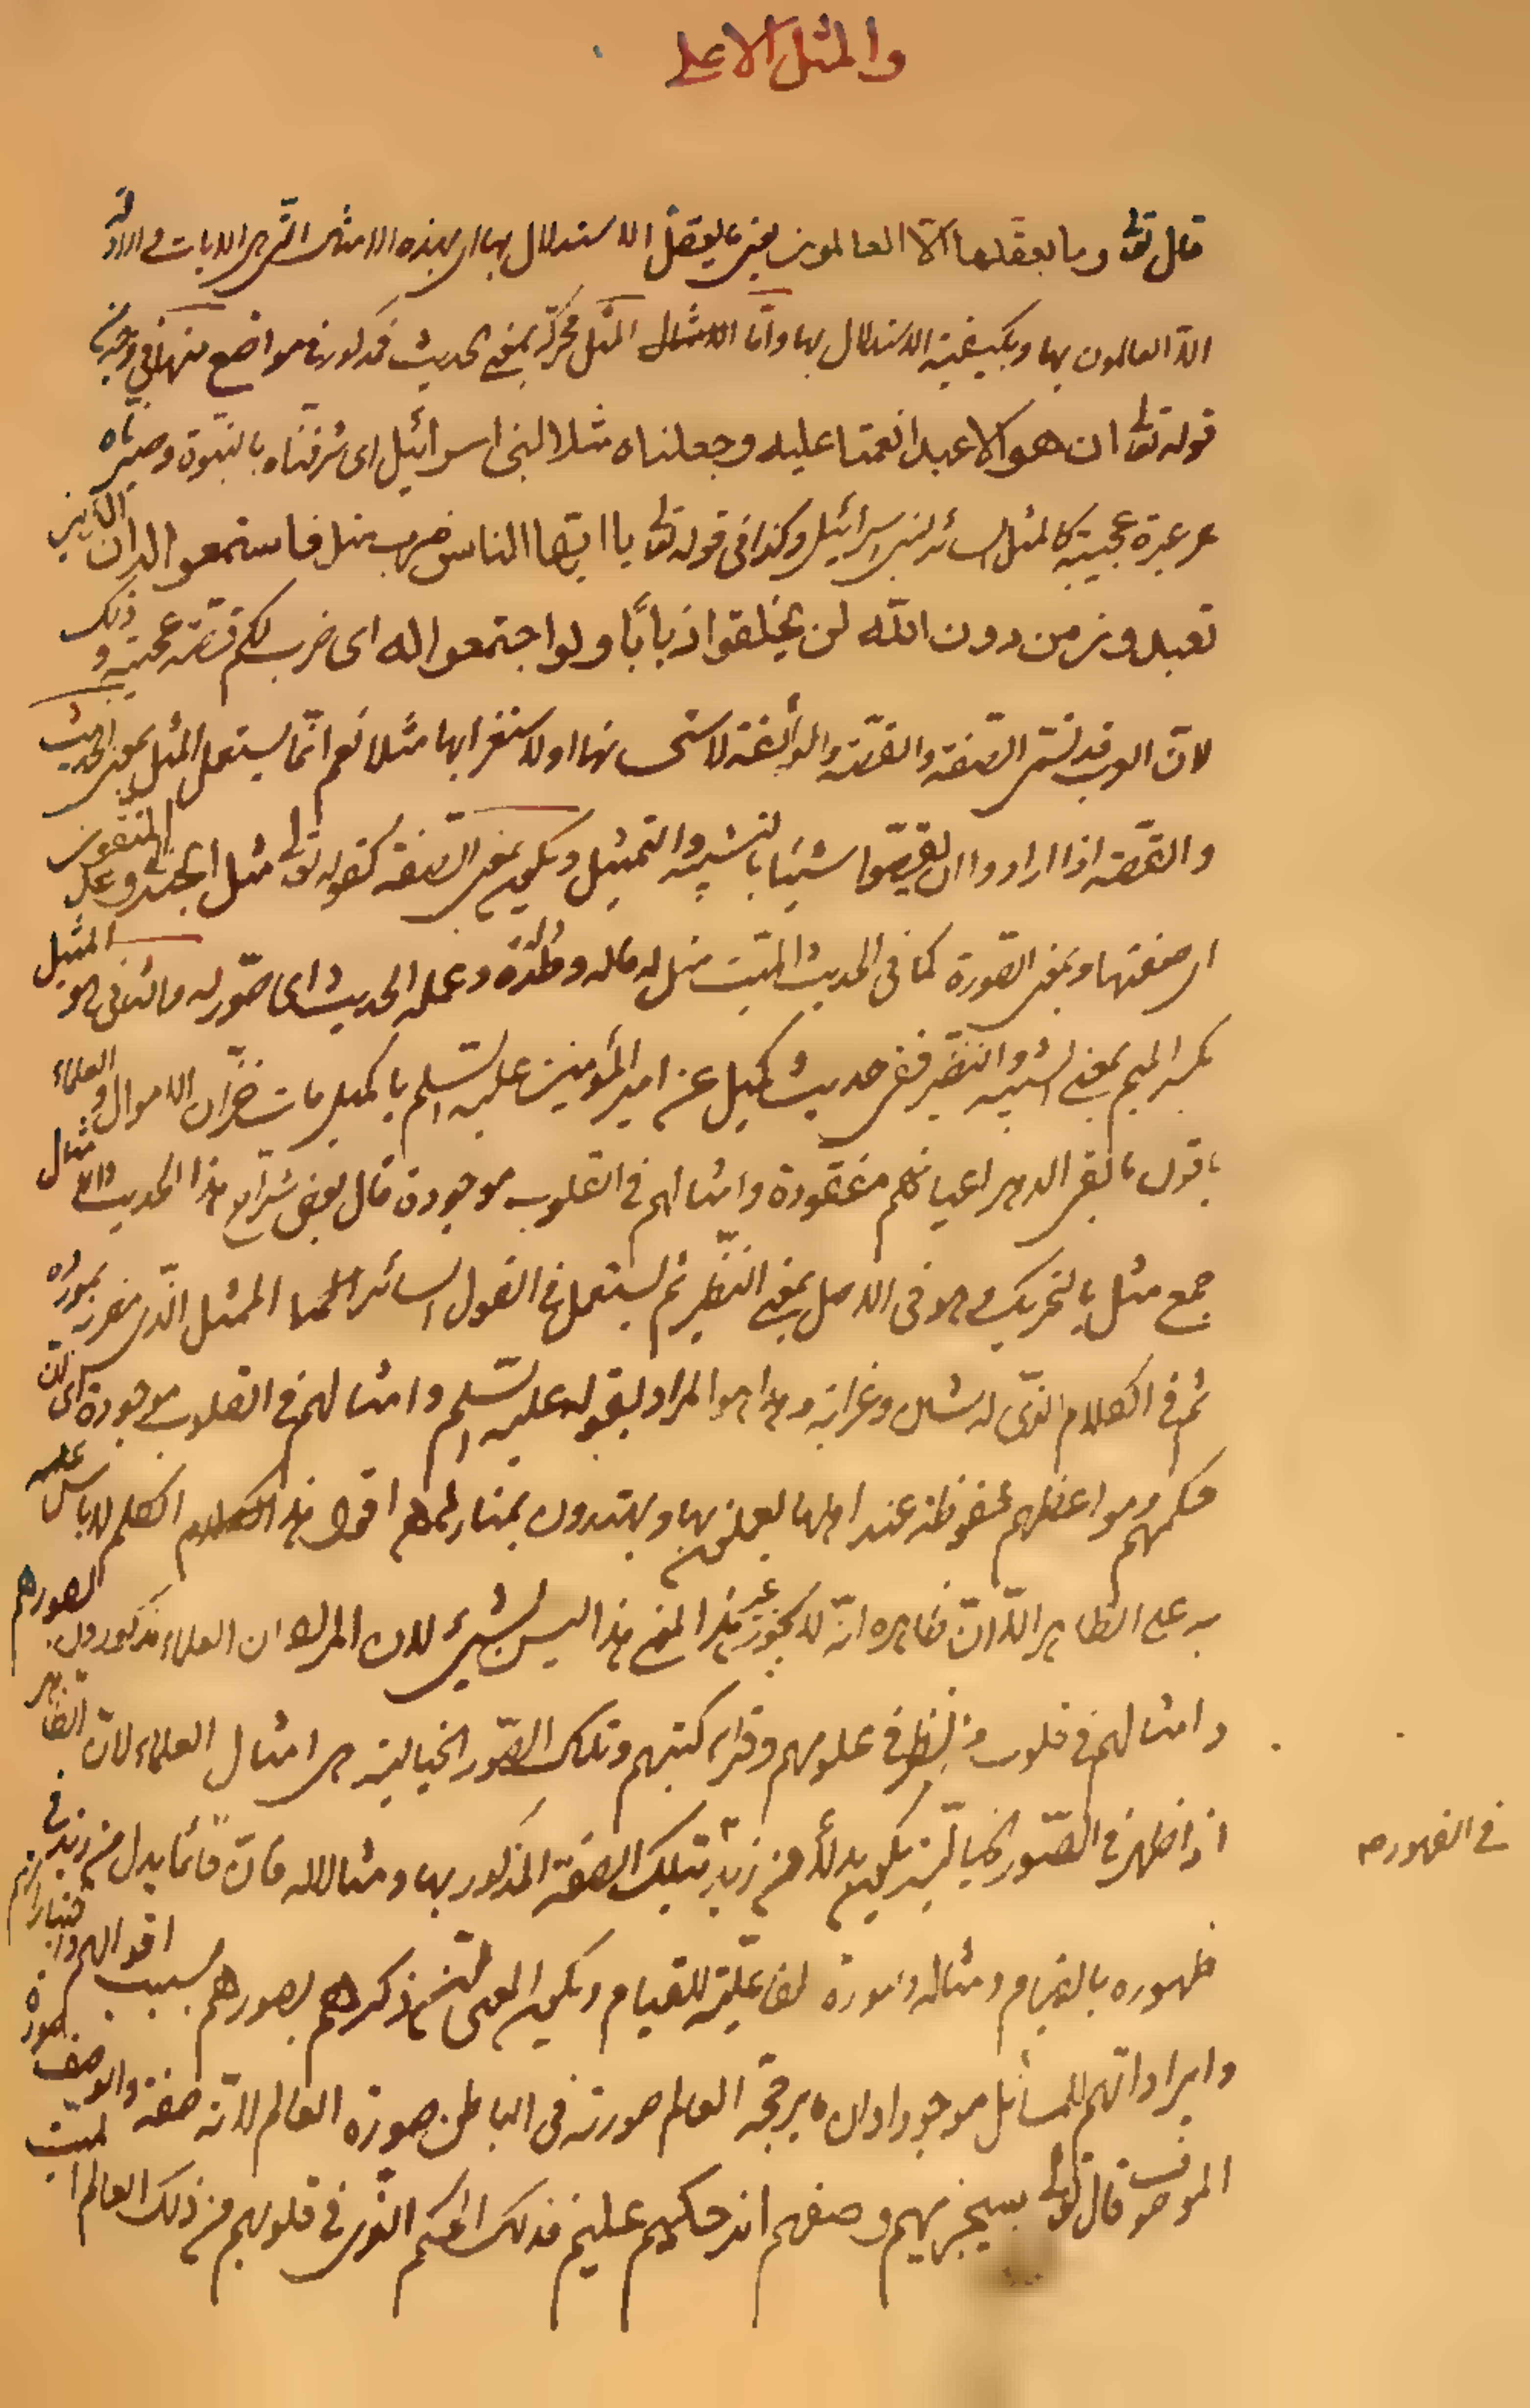 والمثل الاعلى
قال تعالى وما يعقلها الا العالمون يعنى ما يعقل الاستدلال بها اى بهذه الامثال التى هى الايات والادلة
الا العالمون بها وبكيفية الاستدلال بها واما الامثال المثل محركة بمعنى الحديث فمذكور فى مواضع منها فى
قوله تعالى ان هو الا عبد انعمنا عليه وجعلناه مثلا لبنى اسرائيل اى شرفناه بالنبوة وصيرناه
عبرة عجيبة كالمثل السائر لبنى اسرائيل وكذا فى قوله تعالى يا ايها الناس ضرب مثل فاستمعوا له ان الذين
تعبدون من دون الله لن يخلقوا ذبابًا ولو اجتمعوا له اى ضرب لكم قصة عجيبة وذلك
لان العرب قد تسمى الصفة والقصة الرائعة لاستحسانها او لاستغرابها مثلا نعم انما يستعمل المثل بمعنى الحديث
والقصة اذا ارادوا ان يقصوا شيئا بالتشبيه والتمثيل ويكون بمعنى الصفة كقوله تعالى مثل الجنة التى وعد المتقون
اى صفتها وبمعنى الصورة كما فى الحديث الميت مثل له ماله وولده وعمله الحديث اى صور له والثانى هو المثل
بكسر الميم بمعنى الشبيه والنظير ففى حديث كميل عن امير المؤمنين عليه السلم يا كميل مات خزان الاموال والعلماء
باقون ما بقى الدهر اعيانهم مفقودة وامثالهم فى القلوب موجودة قال بعض شراح هذا الحديث والامثال
جمع مثل بالتحريك وهو فى الاصل بمعنى النظير ثم يستعمل فى القول السائر الممثل الذى مضربه بمورده
ثم فى الكلام الذى له شان وغرابة وهذا هو المراد بقوله عليه السلم وامثالهم فى القلوب موجودة اى ان
حكمهم ومواعظهم محفوظة عند اهلها يعملون بها ويهتدون بمنارهم اقول هذا الكلام لا باس
به على الظاهر الا ان ظاهره انه لا يجوز غير هذا المعنى هذا ليس بشىء لان المراد ان العلماء مذكورون بصورهم
وامثالهم فى قلوب من نظر فى علومهم وقرء كتبهم وتلك الصور الخيالية هى امثال العلماء لان الظاهر
اذا ظهر فى الصور الخيالية يكون بدلا من زيد بتلك الصفة المذكور بها ومثالا له فان قائما بدل من زيد فى
فى الظهور صح
ظهوره بالقيام ومثاله وصورة لفاعليته للقيام ويكون المعنى ذكرهم بصورهم بسبب اقوالهم واخبارهم
وايراداتهم للمسائل موجودا وان ما يرجحه العالم صورته فى الباطن صورة العالم لانه صفة والوصف صورة
الموصوف قال تعالى سيجزيهم وصفهم انه حكيم عليم فذلك الحكم الذى فى قلوبهم من ذلك العالم الميت